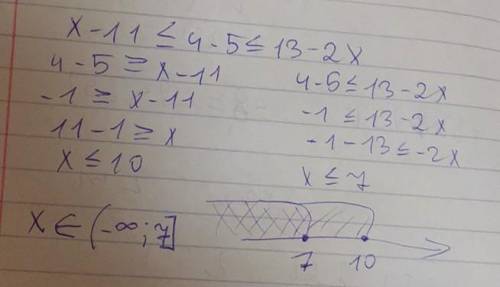 x-11 ≤ 4-5 ≤ 13-2x
4-5 ≥ x-11
-1 ≥ x-11
11-1 ≥ x
x ≤ 10
4-5 ≤ 13-2x
-1 ≤ 13-2x
-1-13 ≤ -2x
x ≤ 7
x ∈ (-∞; 7]
7 10